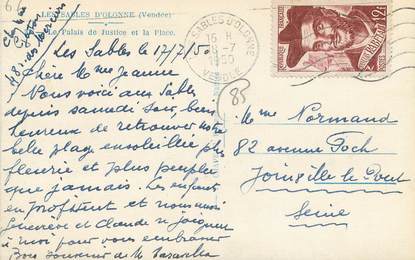 LES SABLES D'OLONNE (Vendée)
Le Palais de Justice et la Place.
Les Sables le 17/7/50
Chère Mme Jeanne
Nous voici aux Sables
depuis samedi soir, bien
heureux de retrouver notre
belle plage ensoleillée plus
fleurie et plus peuplée
que jamais. Les enfants
en profitent et nous aussi
Geneviève et Claude se joignent
à moi pour vous embrasser
Bons souvenirs de M.
SABLES D'OLONNE
15 H
-7
1950
VENDÉE
12F
83
Mme Normand
82 avenue Foch
Joinville le Pont
Seine